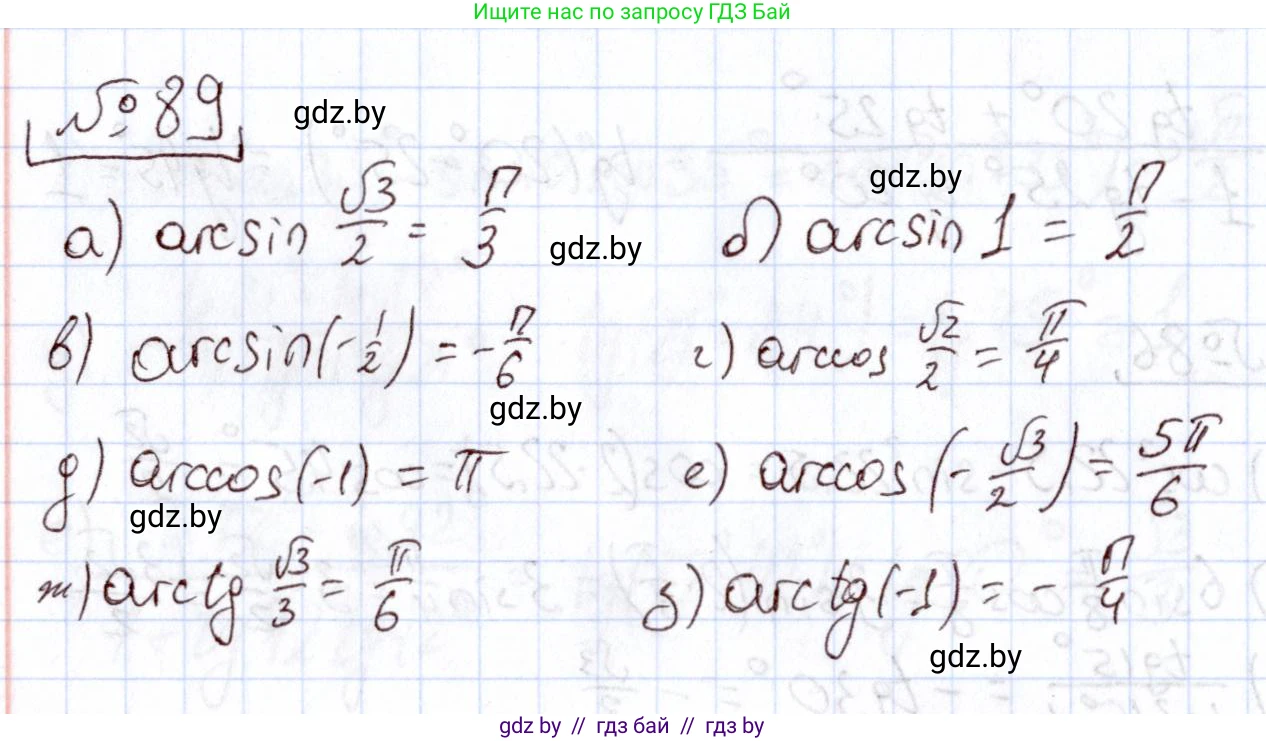 Ищите нас по запросу ГДЗ Бай
№ 89
gdz.by
а) arcsin √3/2 = π/3
gdz.by
б) arcsin 1 = π/2
gdz.by
в) arcsin(-1/2) = -π/6
г) arccos √2/2 = π/4
gdz.by
д) arccos(-1) = π
е) arccos(-√3/2) = 5π/6
gdz.by
ж) arctg √3/3 = π/6
з) arctg(-1) = -π/4
gdz.by
gdz by // гдз бай // гдз by